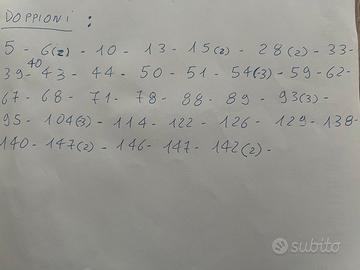 DOPPIONI :
5 - 6(2) - 10 - 13 - 15(2) - 28(2) - 33-
39-40-43 - 44 - 50 - 51 - 54(3) - 59 - 62-
67 - 68 - 71 - 78 - 88 - 89 - 93(3) -
95 - 104(3) - 114 - 122 - 126 - 129 - 138-
140 - 147(2) - 146 - 147 - 142(2) -
subito